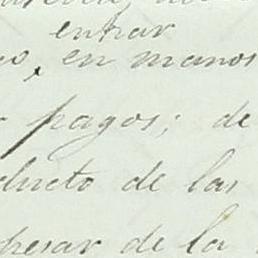 entrar
en manos
pagos; de
ducto de las
pesar de la